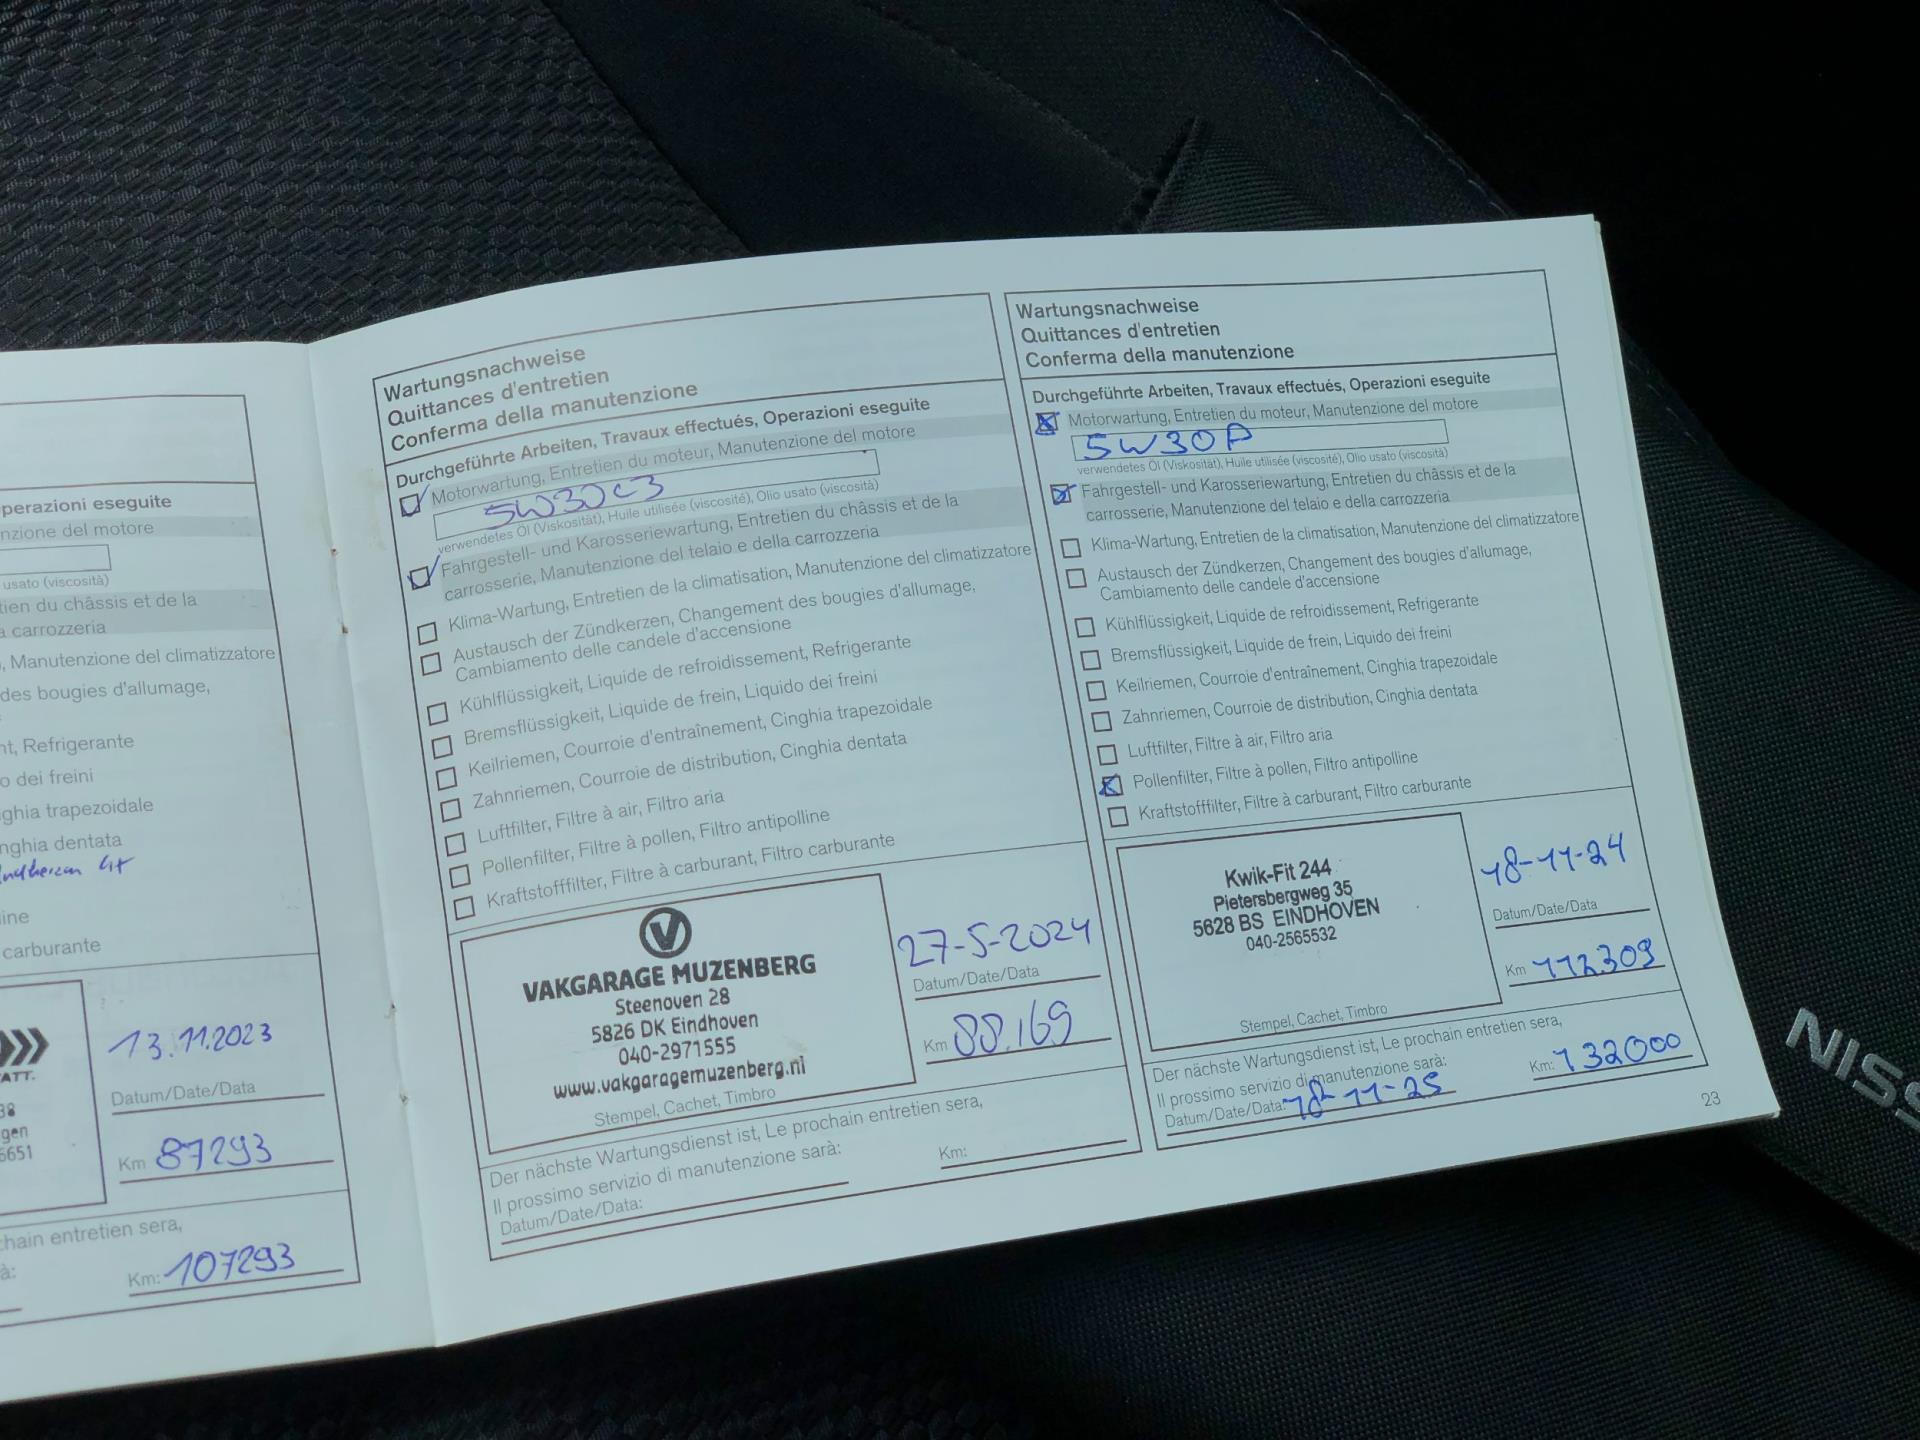 perazioni eseguite
nzione del motore
usato (viscosità)
tien du châssis et de la
a carrozzeria
, Manutenzione del climatizzatore
des bougies d'allumage,
nt, Refrigerante
o dei freini
ghia trapezoidale
nghia dentata
line
carburante
ATT.
38
gen
6651
13.11.2023
Datum/Date/Data
Km 87293
chain entretien sera,
à:
Km: 107293
Wartungsnachweise
Quittances d'entretien
Conferma della manutenzione
Durchgeführte Arbeiten, Travaux effectués, Operazioni eseguite
Motorwartung, Entretien du moteur, Manutenzione del motore
5W30C3
verwendetes Öl (Viskosität), Huile utilisée (viscosité), Olio usato (viscosità)
Fahrgestell- und Karosseriewartung, Entretien du châssis et de la
carrosserie, Manutenzione del telaio e della carrozzeria
Klima-Wartung, Entretien de la climatisation, Manutenzione del climatizzatore
Austausch der Zündkerzen, Changement des bougies d'allumage,
Cambiamento delle candele d'accensione
Kühlflüssigkeit, Liquide de refroidissement, Refrigerante
Bremsflüssigkeit, Liquide de frein, Liquido dei freini
Keilriemen, Courroie d'entraînement, Cinghia trapezoidale
Zahnriemen, Courroie de distribution, Cinghia dentata
Luftfilter, Filtre à air, Filtro aria
Pollenfilter, Filtre à pollen, Filtro antipolline
Kraftstofffilter, Filtre à carburant, Filtro carburante
VAKGARAGE MUZENBERG
Steenoven 28
5826 DK Eindhoven
040-2971555
www.vakgaragemuzenberg.nl
Stempel, Cachet, Timbro
27-5-2024
Datum/Date/Data
Km 88.169
Der nächste Wartungsdienst ist, Le prochain entretien sera,
Il prossimo servizio di manutenzione sarà:
Datum/Date/Data:
Km:
Wartungsnachweise
Quittances d'entretien
Conferma della manutenzione
Durchgeführte Arbeiten, Travaux effectués, Operazioni eseguite
Motorwartung, Entretien du moteur, Manutenzione del motore
5W30P
verwendetes Öl (Viskosität), Huile utilisée (viscosité), Olio usato (viscosità)
Fahrgestell- und Karosseriewartung, Entretien du châssis et de la
carrosserie, Manutenzione del telaio e della carrozzeria
Klima-Wartung, Entretien de la climatisation, Manutenzione del climatizzatore
Austausch der Zündkerzen, Changement des bougies d'allumage,
Cambiamento delle candele d'accensione
Kühlflüssigkeit, Liquide de refroidissement, Refrigerante
Bremsflüssigkeit, Liquide de frein, Liquido dei freini
Keilriemen, Courroie d'entraînement, Cinghia trapezoidale
Zahnriemen, Courroie de distribution, Cinghia dentata
Luftfilter, Filtre à air, Filtro aria
Pollenfilter, Filtre à pollen, Filtro antipolline
Kraftstofffilter, Filtre à carburant, Filtro carburante
Kwik-Fit 244
Pietersbergweg 35
5628 BS EINDHOVEN
040-2565532
Stempel, Cachet, Timbro
18-11-24
Datum/Date/Data
Km 112309
Der nächste Wartungsdienst ist, Le prochain entretien sera,
Il prossimo servizio di manutenzione sarà:
Datum/Date/Data: 18-11-25
Km: 132000
23
NISS